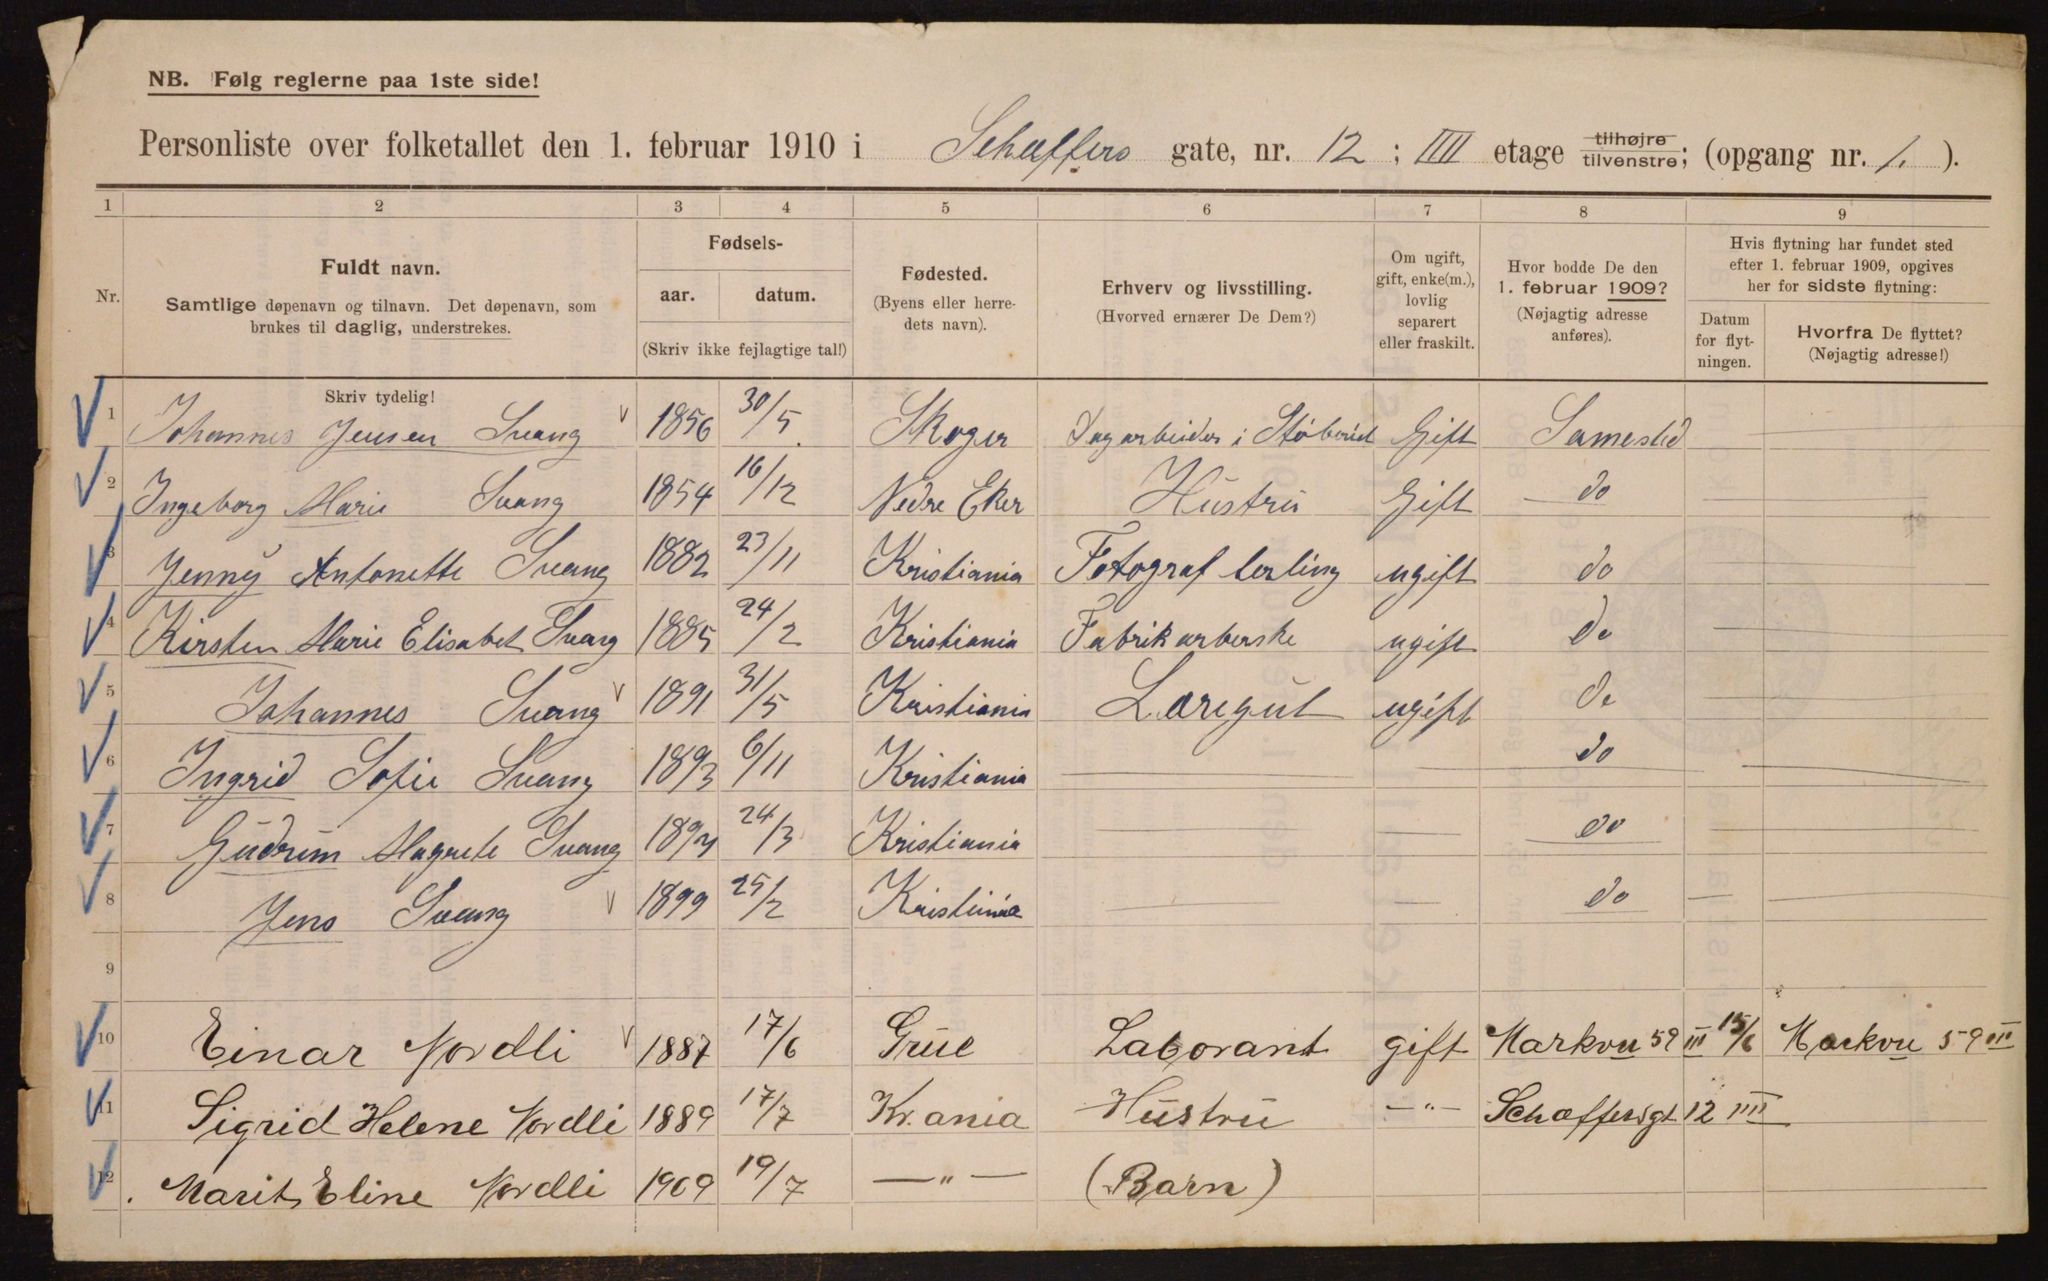 NB. Følg reglerne paa 1ste side!
Personliste over folketallet den 1. februar 1910 i Schæffers gate, nr. 12 ; IIII etage tilhøjre tilvenstre; (opgang nr. 1. ).
1 2 3 4 5 6 7 8 9
Nr.
Fuldt navn.
Samtlige døpenavn og tilnavn. Det døpenavn, som
brukes til daglig, understrekes.
Skriv tydelig!
Fødsels-
aar. datum.
(Skriv ikke fejlagtige tal!)
Fødested.
(Byens eller herre-
dets navn).
Erhverv og livsstilling.
(Hvorved ernærer De Dem?)
Om ugift,
gift, enke(m.),
lovlig
separert
eller fraskilt.
Hvor bodde De den
1. februar 1909?
(Nøjagtig adresse
anføres).
Hvis flytning har fundet sted
efter 1. februar 1909, opgives
her for sidste flytning:
Datum
for flyt-
ningen.
Hvorfra De flyttet?
(Nøjagtig adresse!)
1 Johannes Jensen Svang 1856 30/5 Skoger Dagarbeider i Støberiet Gift Samested
2 Ingeborg Marie Svang 1854 16/12 Nedre Eker Hustru Gift do
3 Jenny Antonette Svang 1882 23/11 Kristiania Fotograf lerling ugift do
4 Kirsten Marie Elisabet Svang 1885 24/2 Kristiania Fabrikarberske ugift do
5 Johannes Svang 1891 31/5 Kristiania Læregut ugift do
6 Ingrid Sofie Svang 1893 6/11 Kristiania do
7 Gudrun Magrete Svang 24/3 Kristiania do
8 Jens Svang 1899 25/2 Kristiania do
9
10 Einar Nordli 1887 17/6 Grue Laborant gift Markvn 59 III 15/6 Markvn 59 III
11 Sigrid Helene Nordli 1889 17/7 Kr.ania Hustru —"— Schæffersgt 12 IIII
12 Marit Eline Nordli 1909 19/7 —"— (Barn)